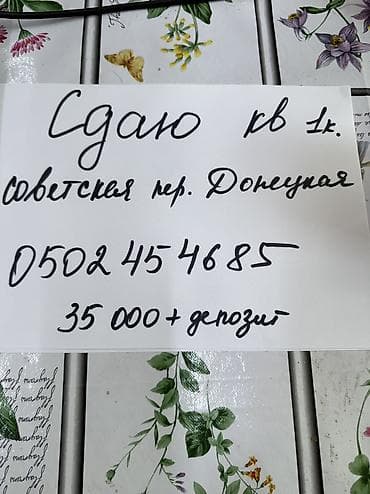 Сдаю кв 1к.
советская пер. Донецкая
0502454685
35 000 + депозит